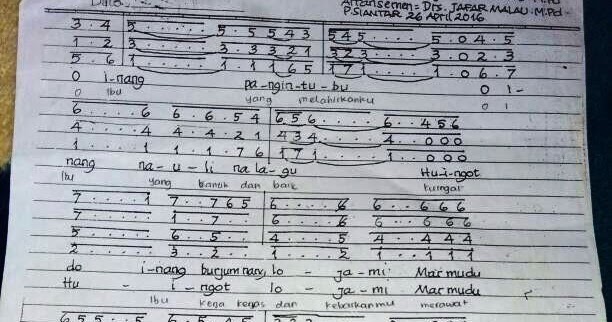 Arransemen = Drs. JAFAR MALAU. M.Pd
PSIANTAR 26 April 2016
3 4 5 . . . . 5 . 5 5 4 3 5 4 5 . . . . . 5 . 0 4 . 5
1 2 3 . . . . 3 . 3 3 2 1 3 2 3 . . . . . 3 . 0 2 . 3
5 . 6 1 . . . . 1 . 1 1 6 5 1 7 1 . . . . . 1 . 0 6 . 7
0 i-nang pa-ngin-tu-bu 0 1-
0 Ibu yang melahirkanku 0 1
6 . . . . 6 6 . 6 . 5 4 6 5 6 . . . . . 6 . . 4 5 6
4 . . . . 4 4 . 4 . 2 1 4 3 4 . . . . . 4 . . 0 0 0
1 . . . . 1 1 . 1 . 7 6 1 7 1 . . . . . 1 . . 0 0 0
nang na-u-li na la-gu Hu-i-ngot
Ibu yang bantik dan baik kuingat
7 . . . . 1 7 . . 7 6 5 6 . . . . 6 6 . . 6 6 6
7 . . . . . 1 . 7 . . 6 . . . . 6 6 . . 6 6 6
5 . . . . . 6 . 5 . . 4 . . . . 5 4 . . 4 4 4
2 . . . . . 3 . 2 . . 1 . . . . 2 1 . . 1 1 1
do i-nang burju man, lo - ja-mi Marmudu
Hu - i - ngot lo - ja-mi Marmudu
Ibu kerja keras dan kebaikanmu merawat